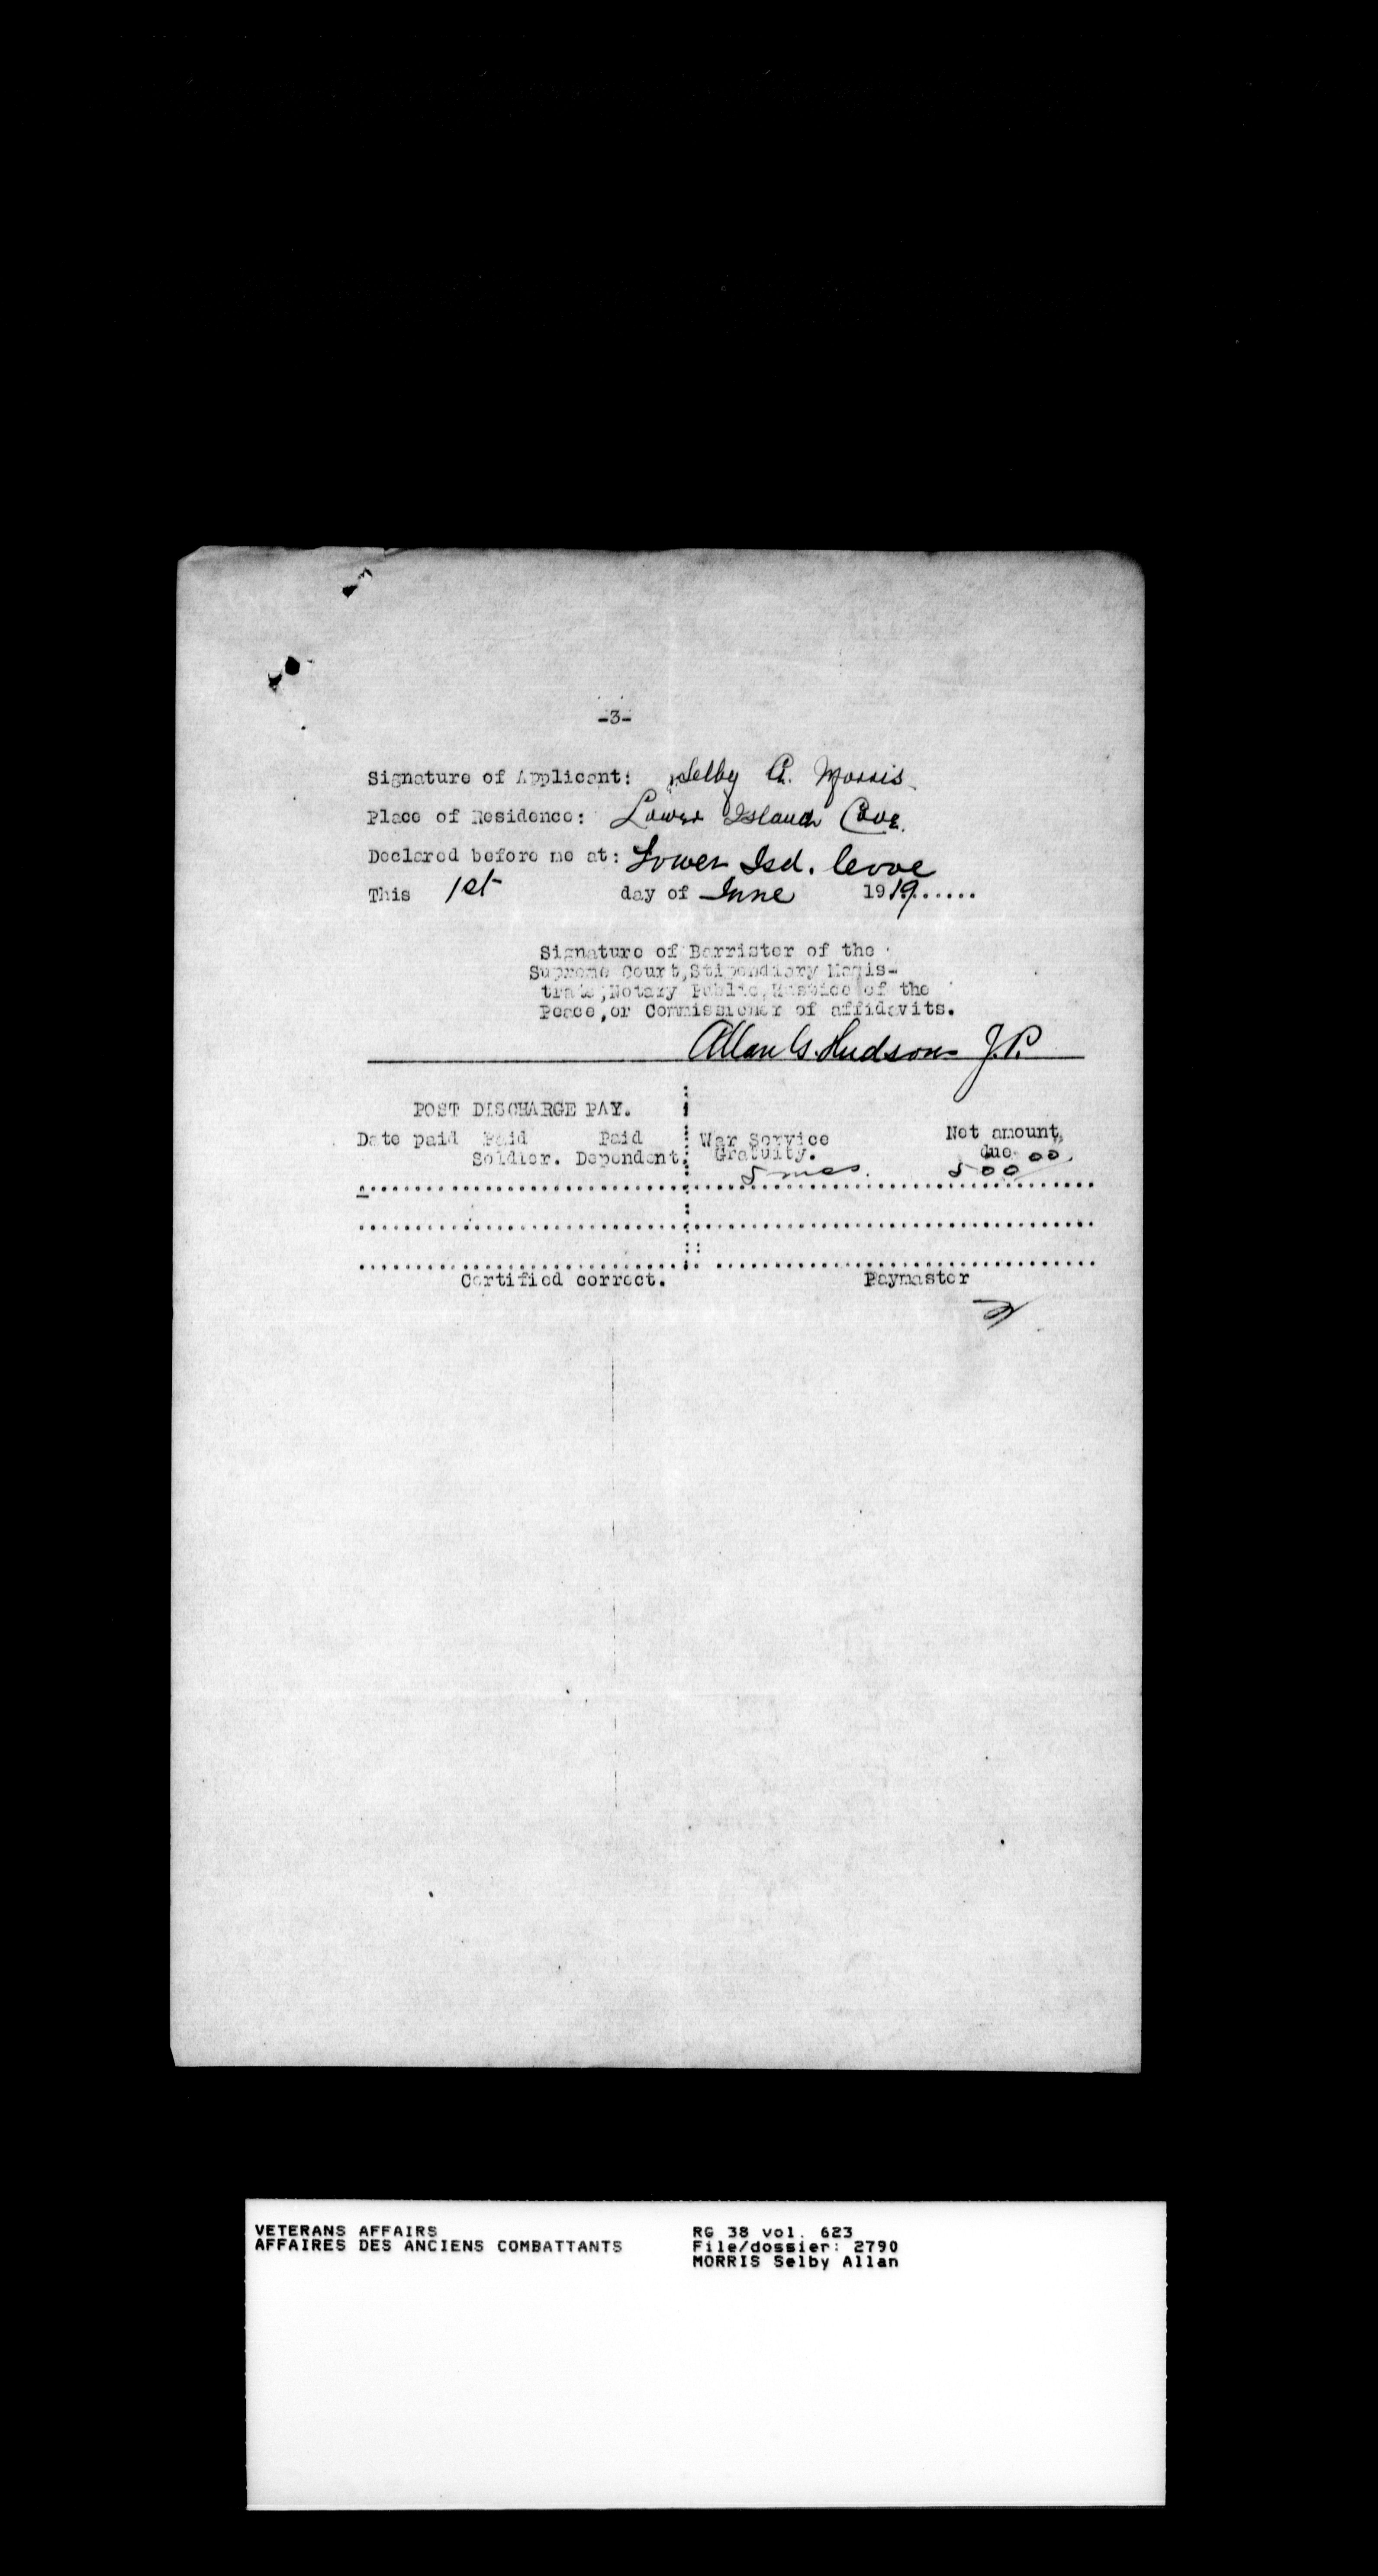 -3-
Signature of Applicant: Selby A. Morris
Place of Residence: Lower Island Cove.
Declared before me at: Lower Isd. Cove
This 1st day of June 1919......
Signature of Barrister of the
Supreme Court, Stipendiary Magis-
trate, Notary Public, Huspice of the
Peace, or Commissioner of affidavits.
Allan G. Hudson J.P.
POST DISCHARGE PAY.
Date paid Paid Paid War Service Net amount
Soldier. Dependent. Gratuity. due
5 mos. 500 00
Certified correct. Paymaster
VETERANS AFFAIRS RG 38 vol. 623
AFFAIRES DES ANCIENS COMBATTANTS File/dossier: 2790
MORRIS Selby Allan